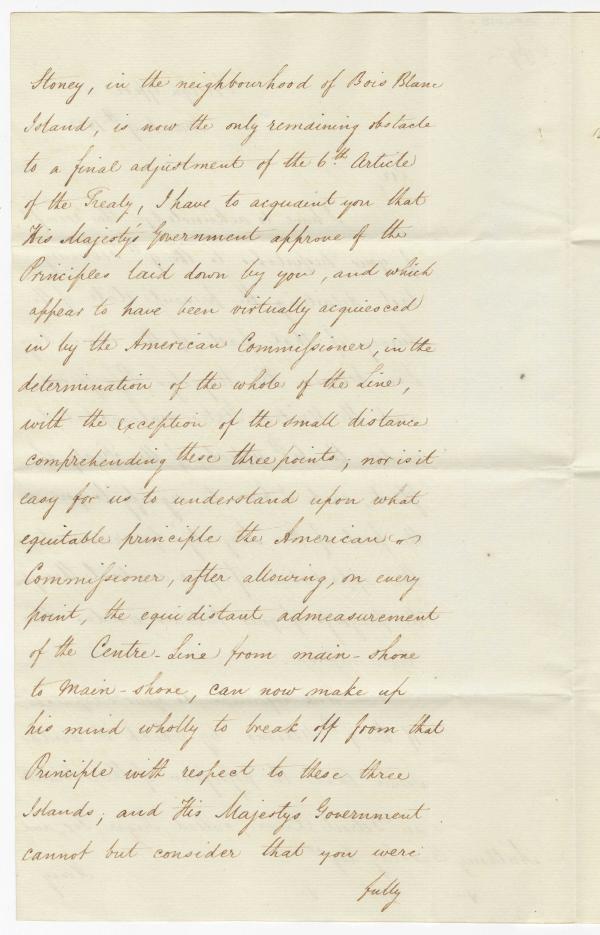 Stoney, in the neighbourhood of Bois Blanc
Island, is now the only remaining obstacle
to a final adjustment of the 6th. Article
of the Treaty, I have to acquaint you that
His Majesty's Government approve of the
Principles laid down by you, and which
appear to have been virtually acquiesced
in by the American Commissioner, in the
determination of the whole of the Line,
with the exception of the small distance
comprehending these three points; nor is it
easy for us to understand upon what
equitable principle the American
Commissioner, after allowing, on every
point, the equidistant admeasurement
of the Centre-Line from main-shore
to Main-shore, can now make up
his mind wholly to break off from that
Principle with respect to these three
Islands; and His Majesty's Government
cannot but consider that you were
fully